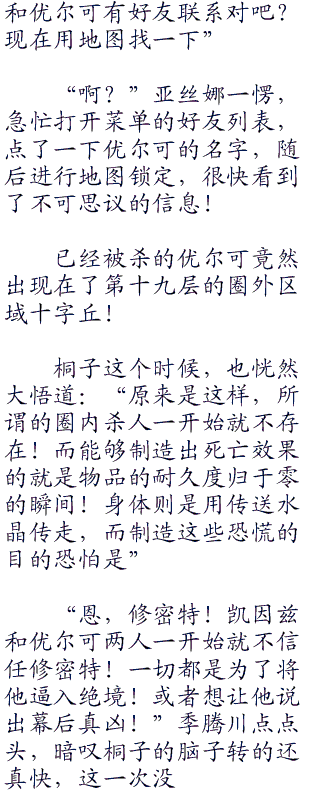 和优尔可有好友联系对吧？
现在用地图找一下”
“啊？”亚丝娜一愣，
急忙打开菜单的好友列表，
点了一下优尔可的名字，随
后进行地图锁定，很快看到
了不可思议的信息！
已经被杀的优尔可竟然
出现在了第十九层的圈外区
域十字丘！
桐子这个时候，也恍然
大悟道：“原来是这样，所
谓的圈内杀人一开始就不存
在！而能够制造出死亡效果
的就是物品的耐久度归于零
的瞬间！身体则是用传送水
晶传走，而制造这些恐慌的
目的恐怕是”
“恩，修密特！凯因兹
和优尔可两人一开始就不信
任修密特！一切都是为了将
他逼入绝境！或者想让他说
出幕后真凶！”季腾川点点
头，暗叹桐子的脑子转的还
真快，这一次没